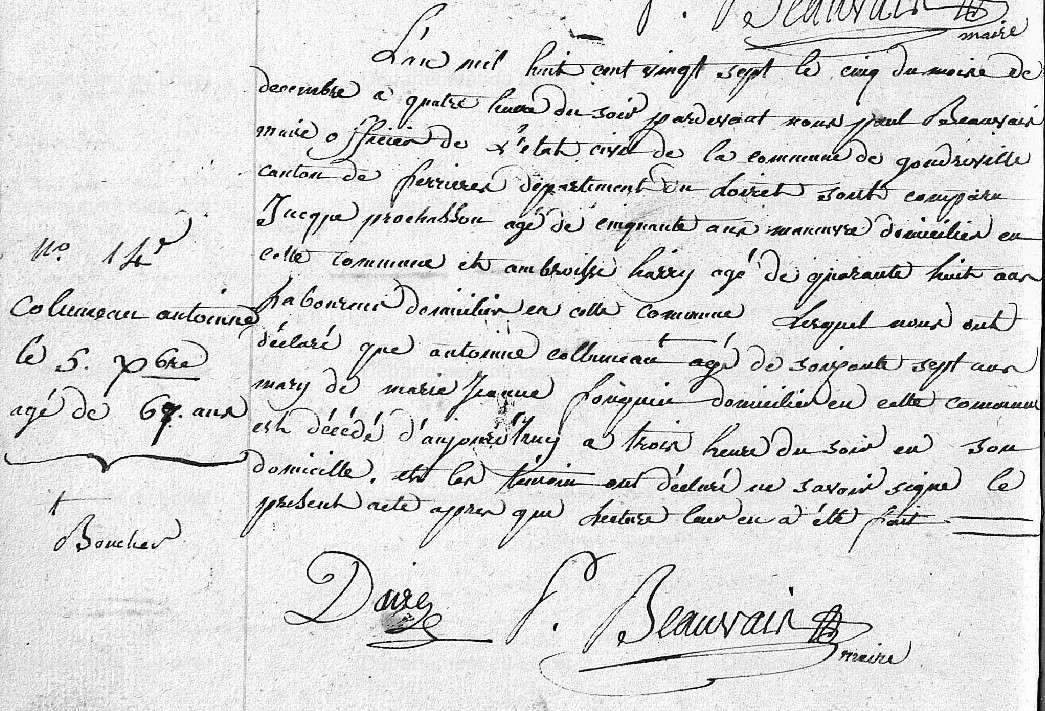 P. Beauvais
maire
L'an mil huit cent vingt sept le cinq du moise de
decembre a quatre heure du soir pardevant nous paul Beauvais
maire officier de L'état civil de la commune de gondreville
canton de ferrieres departement du Loiret sont comparu
Jacque prochasson agé de cinquante ans manuvre domicilier en
cette commune et ambroisse harry agé de quarante huit ans
Laboureur domicilier en cette commune Lesquel nous ont
déclaré que antoinne collumeau agé de soixante sept ans
mary de marie Jeanne domicilier en cette commune
est décédé d'aujourd'huy a trois heure du soir en son
domicille. et les témoin ont déclaré ne savoir signe le
présent acte apres que lecture leur en a été fait
no. 14e
Columeau antoinne
le 5. xbre
agé de 67 ans
t
Boucher
P. Beauvais
maire